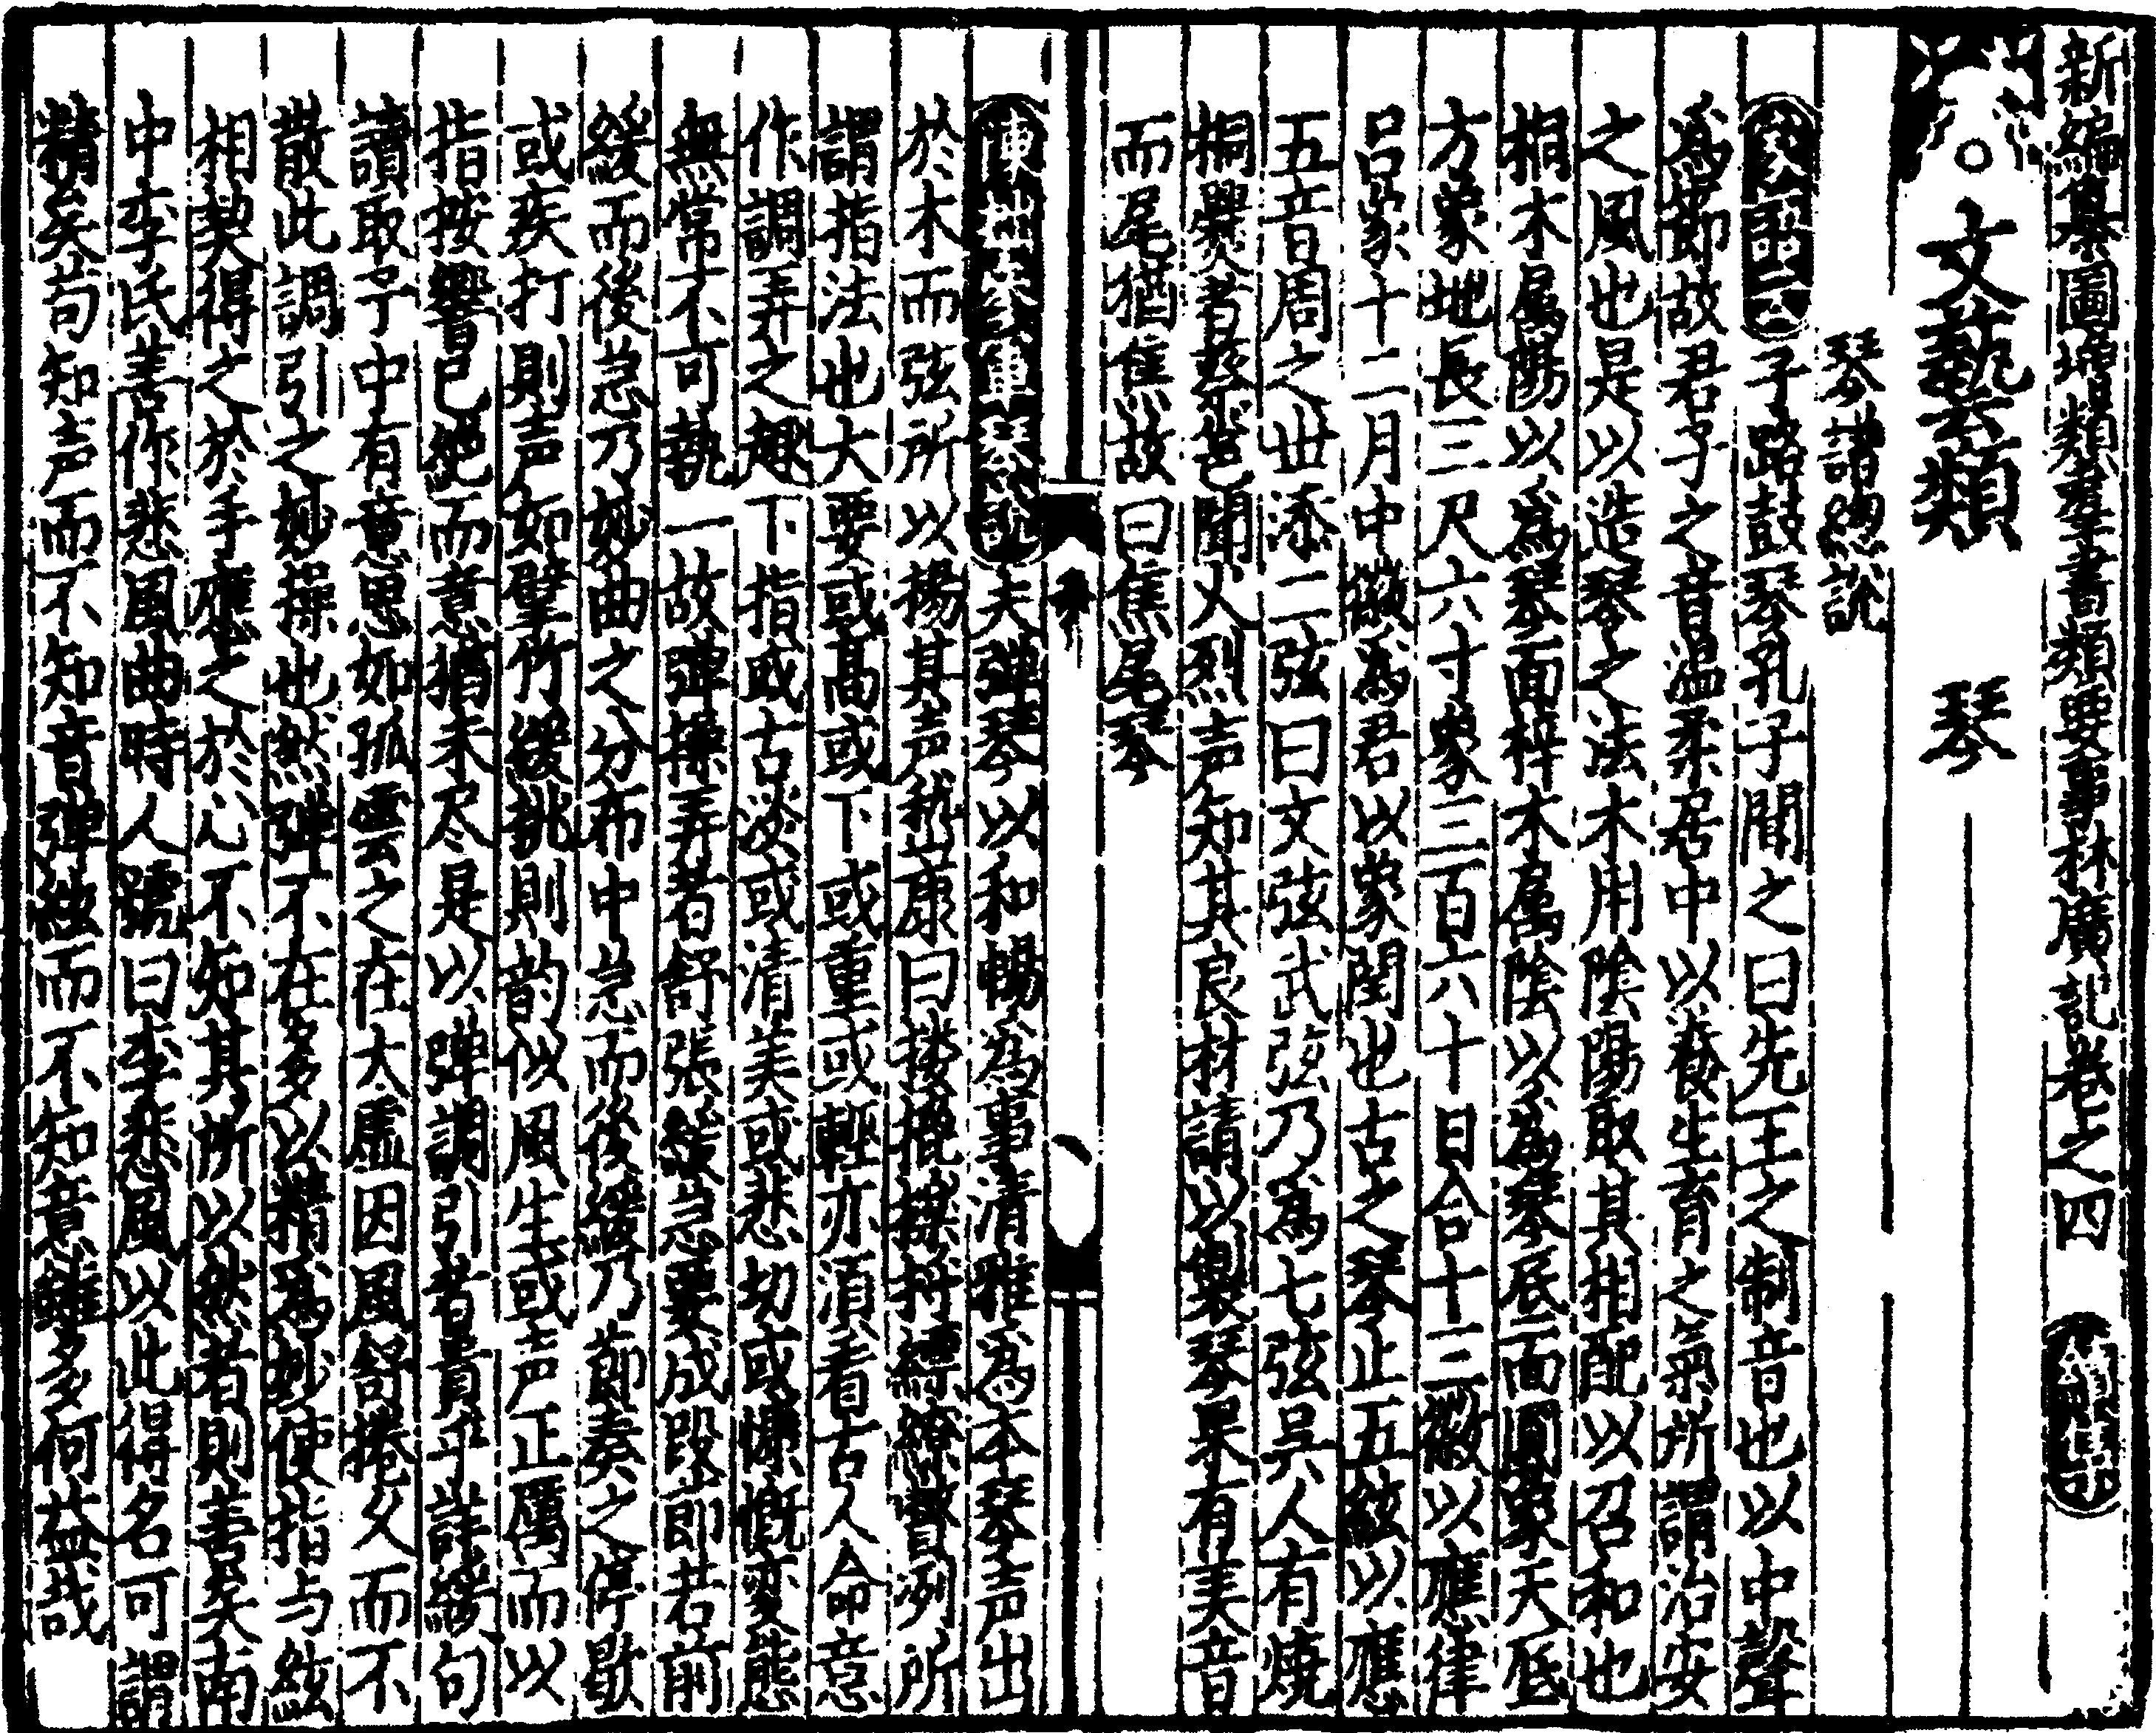 新編纂圖增類羣書類要事林廣記卷之四
○文藝類　琴
琴譜總說
子路鼓琴孔子聞之曰先王之制音也以中聲
爲節故君子之音温柔居中以養生育之氣所謂治安
之風也是以造琴之法木用陰陽取其相配以召和也
桐木属陽以爲琴面梓木屬陰以爲琴底面圓象天底
方象地長三尺六寸象三百六十日合十三徽以應律
吕象十二月中徽爲君以象閏也古之琴止五絃以應
五音周之世添二弦曰文弦武弦乃爲七弦吴人有燒
桐爨者蔡邕聞火烈声知其良材請以製琴果有美音
而尾猶焦故曰焦尾琴
夫彈琴以和暢爲事清雅爲本琴声出
於木而弦所以揚其声嵇康曰摟㩴擽捋縹繚潎冽所
謂指法也大要或髙或下或重或輕亦湏看古人命意
作調弄之趣下指或古淡或清美或悲切或慷慨変態
無常不可執一故彈操弄者舒張緩急要成段節若前
緩而後急乃妙曲之分布中急而後緩乃節奏之停歇
或疾打則声如擘竹緩挑則韵似風生或声正厲而以
指按響已絶而意猶未尽是以彈調引者貴乎詳緩句
讀取予中有意思如孤雲之在大虚因風舒捲久而不
散此調引之妙操也然彈不在多以精爲妙使指与絃
相契得之於手應之於心不知其所以然者則善矣南
中李氏善作悲風曲時人號曰李悲風以此得名可謂
精矣苟知声而不知音彈絃而不知意雖多何益哉